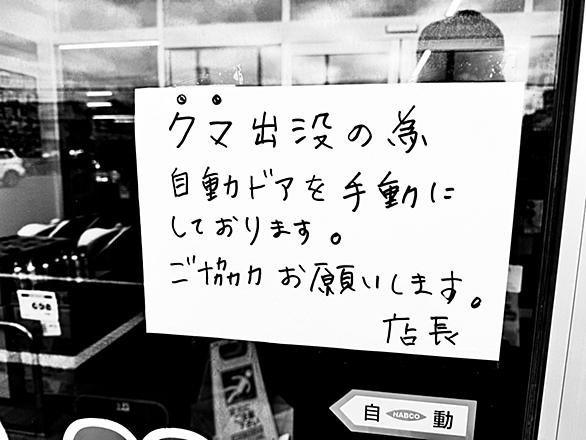 クマ出没の為
自動ドアを手動に
しております。
ご協力お願いします。
店長
自 NABCO 動